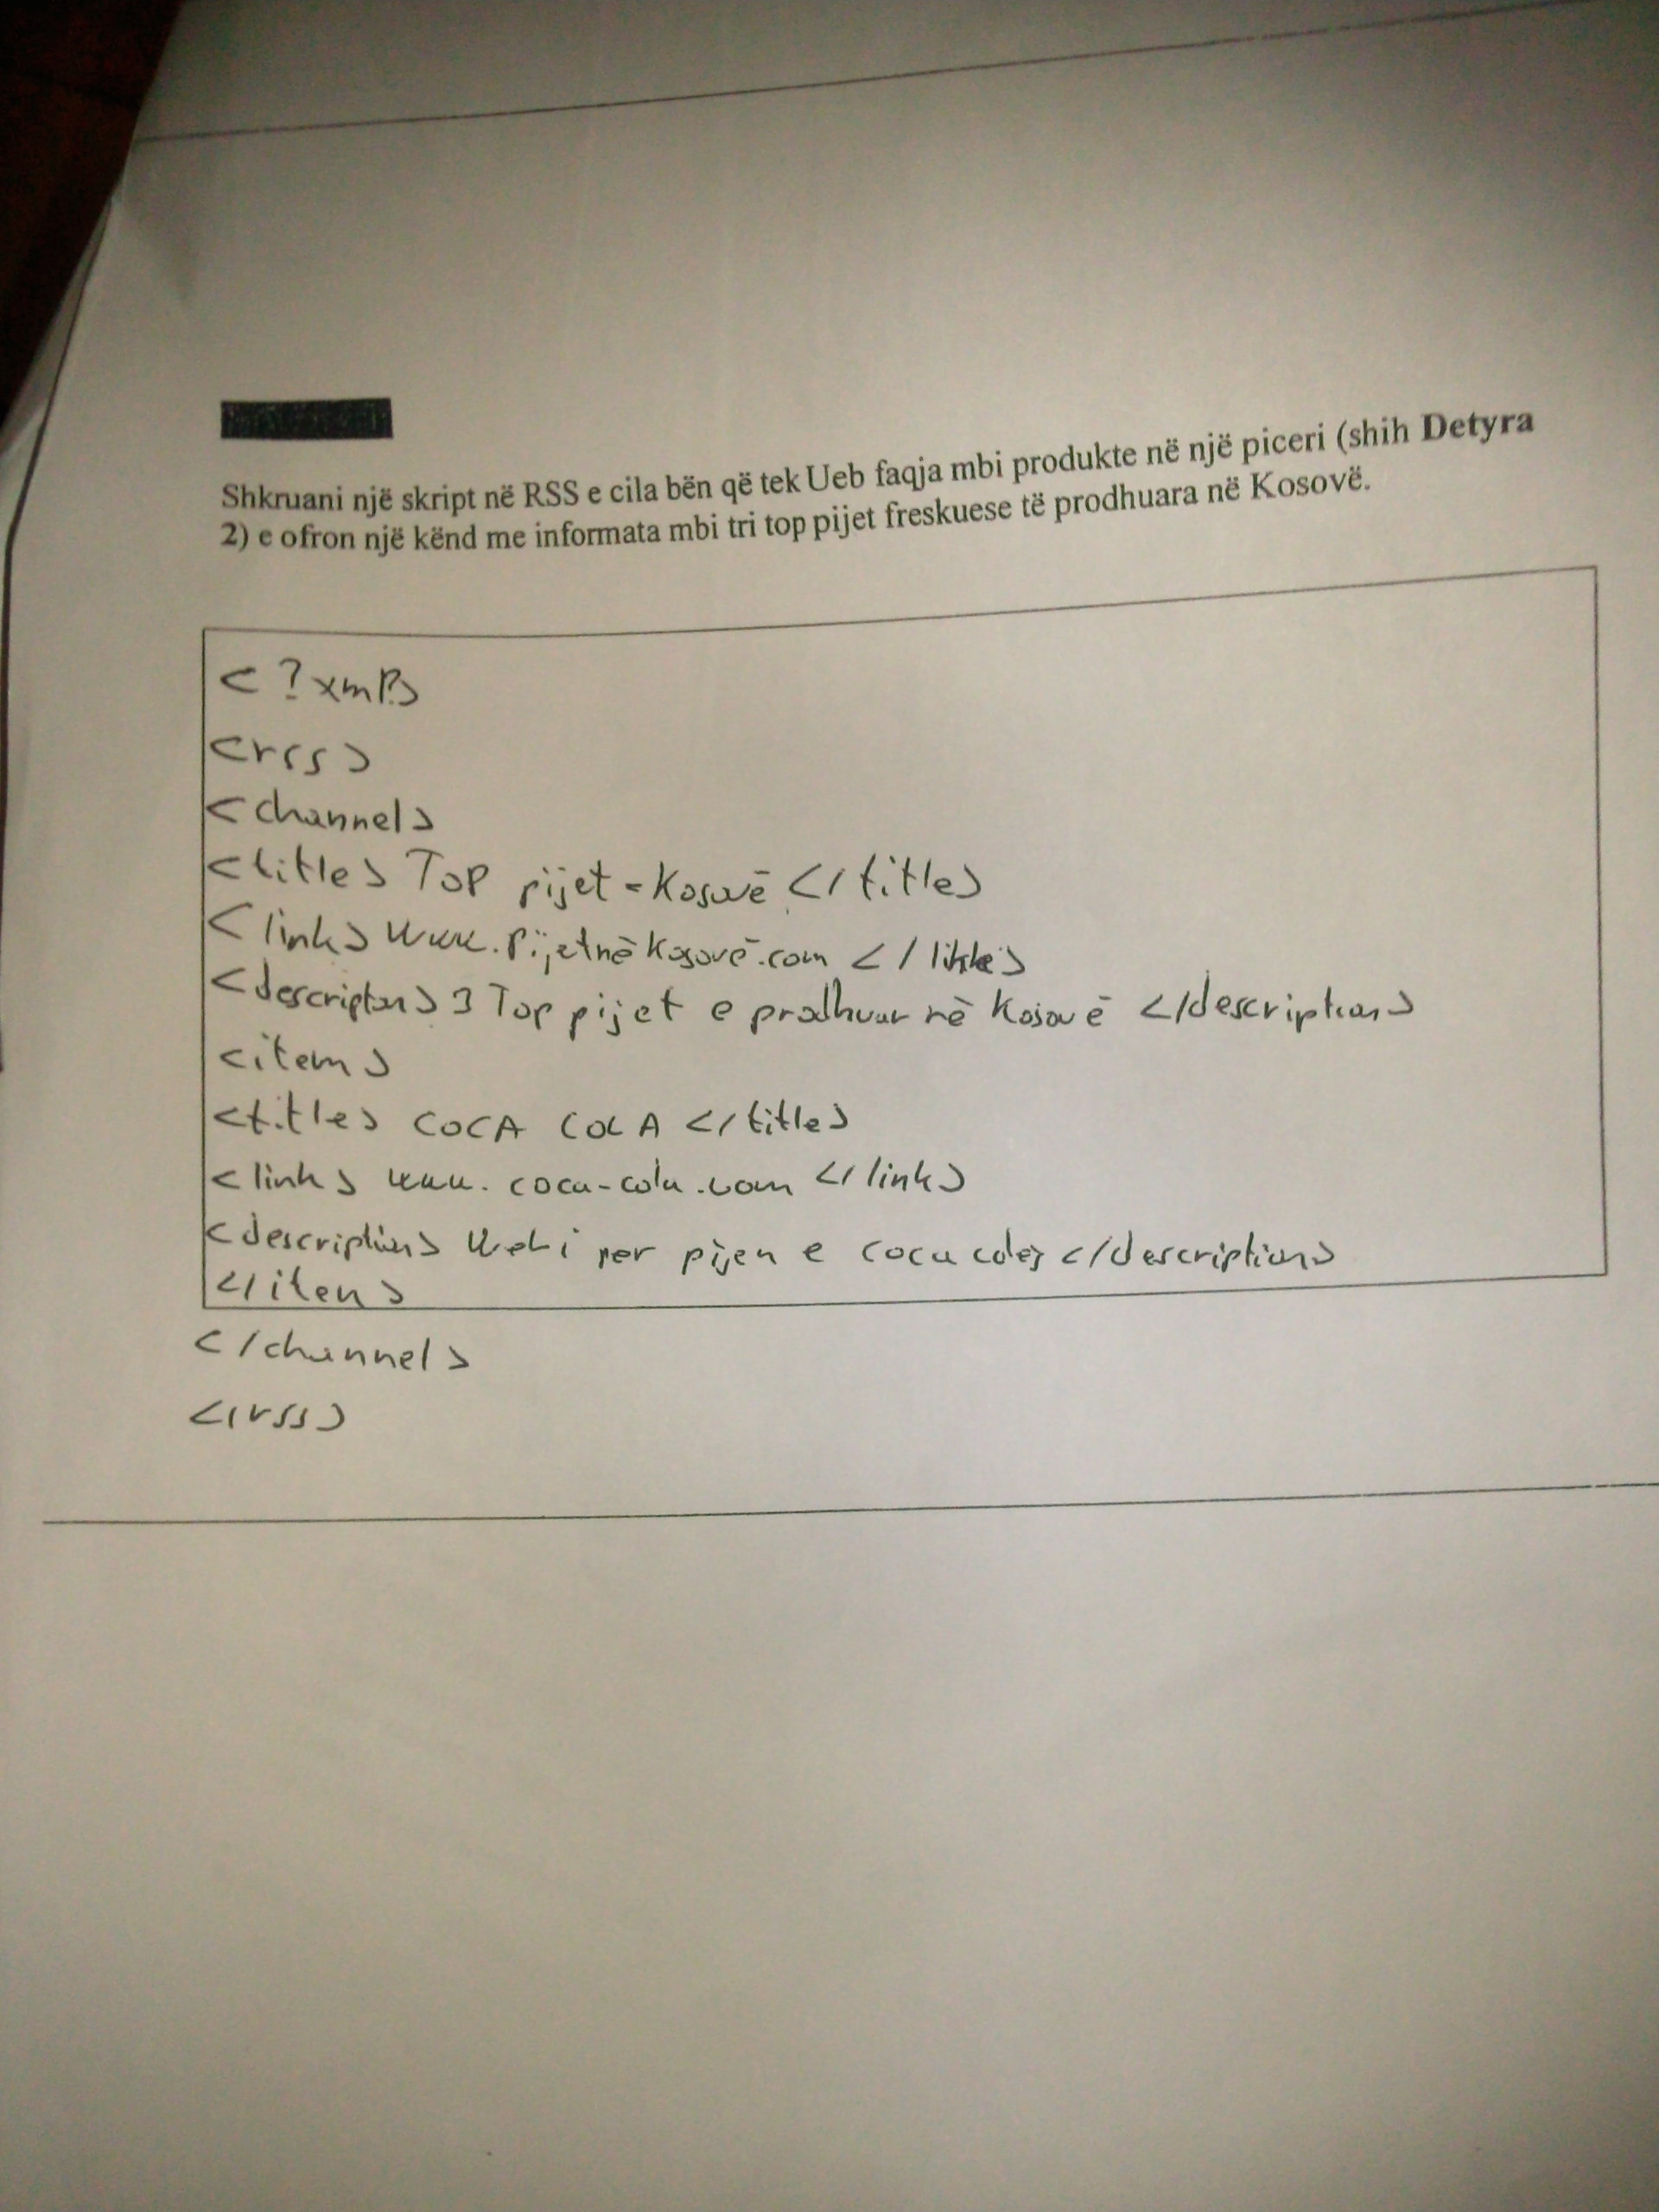 Shkruani një skript në RSS e cila bën që tek Ueb faqja mbi produkte në një piceri (shih Detyra
2) e ofron një kënd me informata mbi tri top pijet freskuese të prodhuara në Kosovë.
<?xml?>
<rss>
<channel>
<title> Top pijet - Kosovë </title>
<link> www.pijetnëkosovë.com </link>
<description> 3 Top pijet e prodhuar në Kosovë </description>
<item>
<title> COCA COLA </title>
<link> www.coca-cola.com </link>
<description> Uebi per pijen e coca coles </description>
</item>
</channel>
</rss>